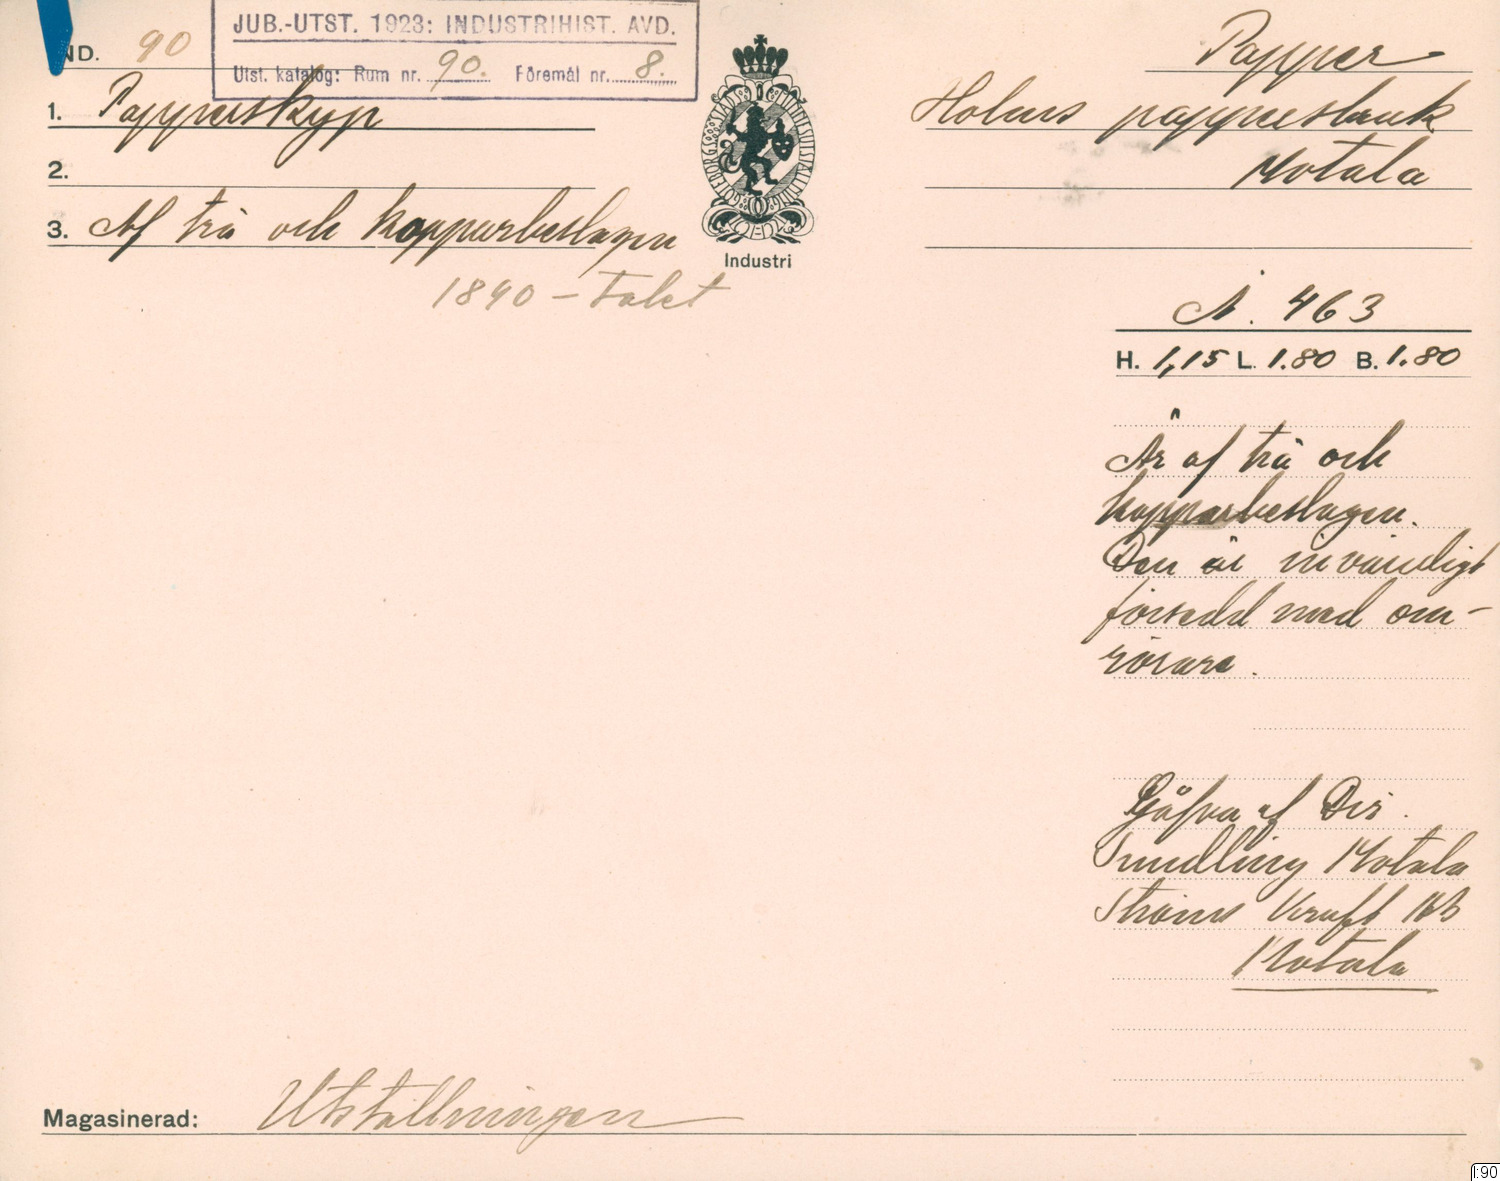 JUB.-UTST. 1923: INDUSTRIHIST. AVD.
Utst. katalog: Rum nr. 90. Föremål nr. 8.
ND. 90
1. Papperskyp
2.
3. Af trä och kopparbeslagen
1890-talet
GÖTEBORGS STADS JUBILEUMSUTSTÄLLNING
Industri
Papper
Holms pappersbruk
Motala
N. 463
H. 1,15 L. 1.80 B. 1.80
Är af trä och
kopparbeslagen.
Den är invändigt
försedd med om-
rörare.
Gåfva af Dis.
Sundling Motala
Ströms Kraft AB
Motala
Magasinerad: Utställningen
I:90